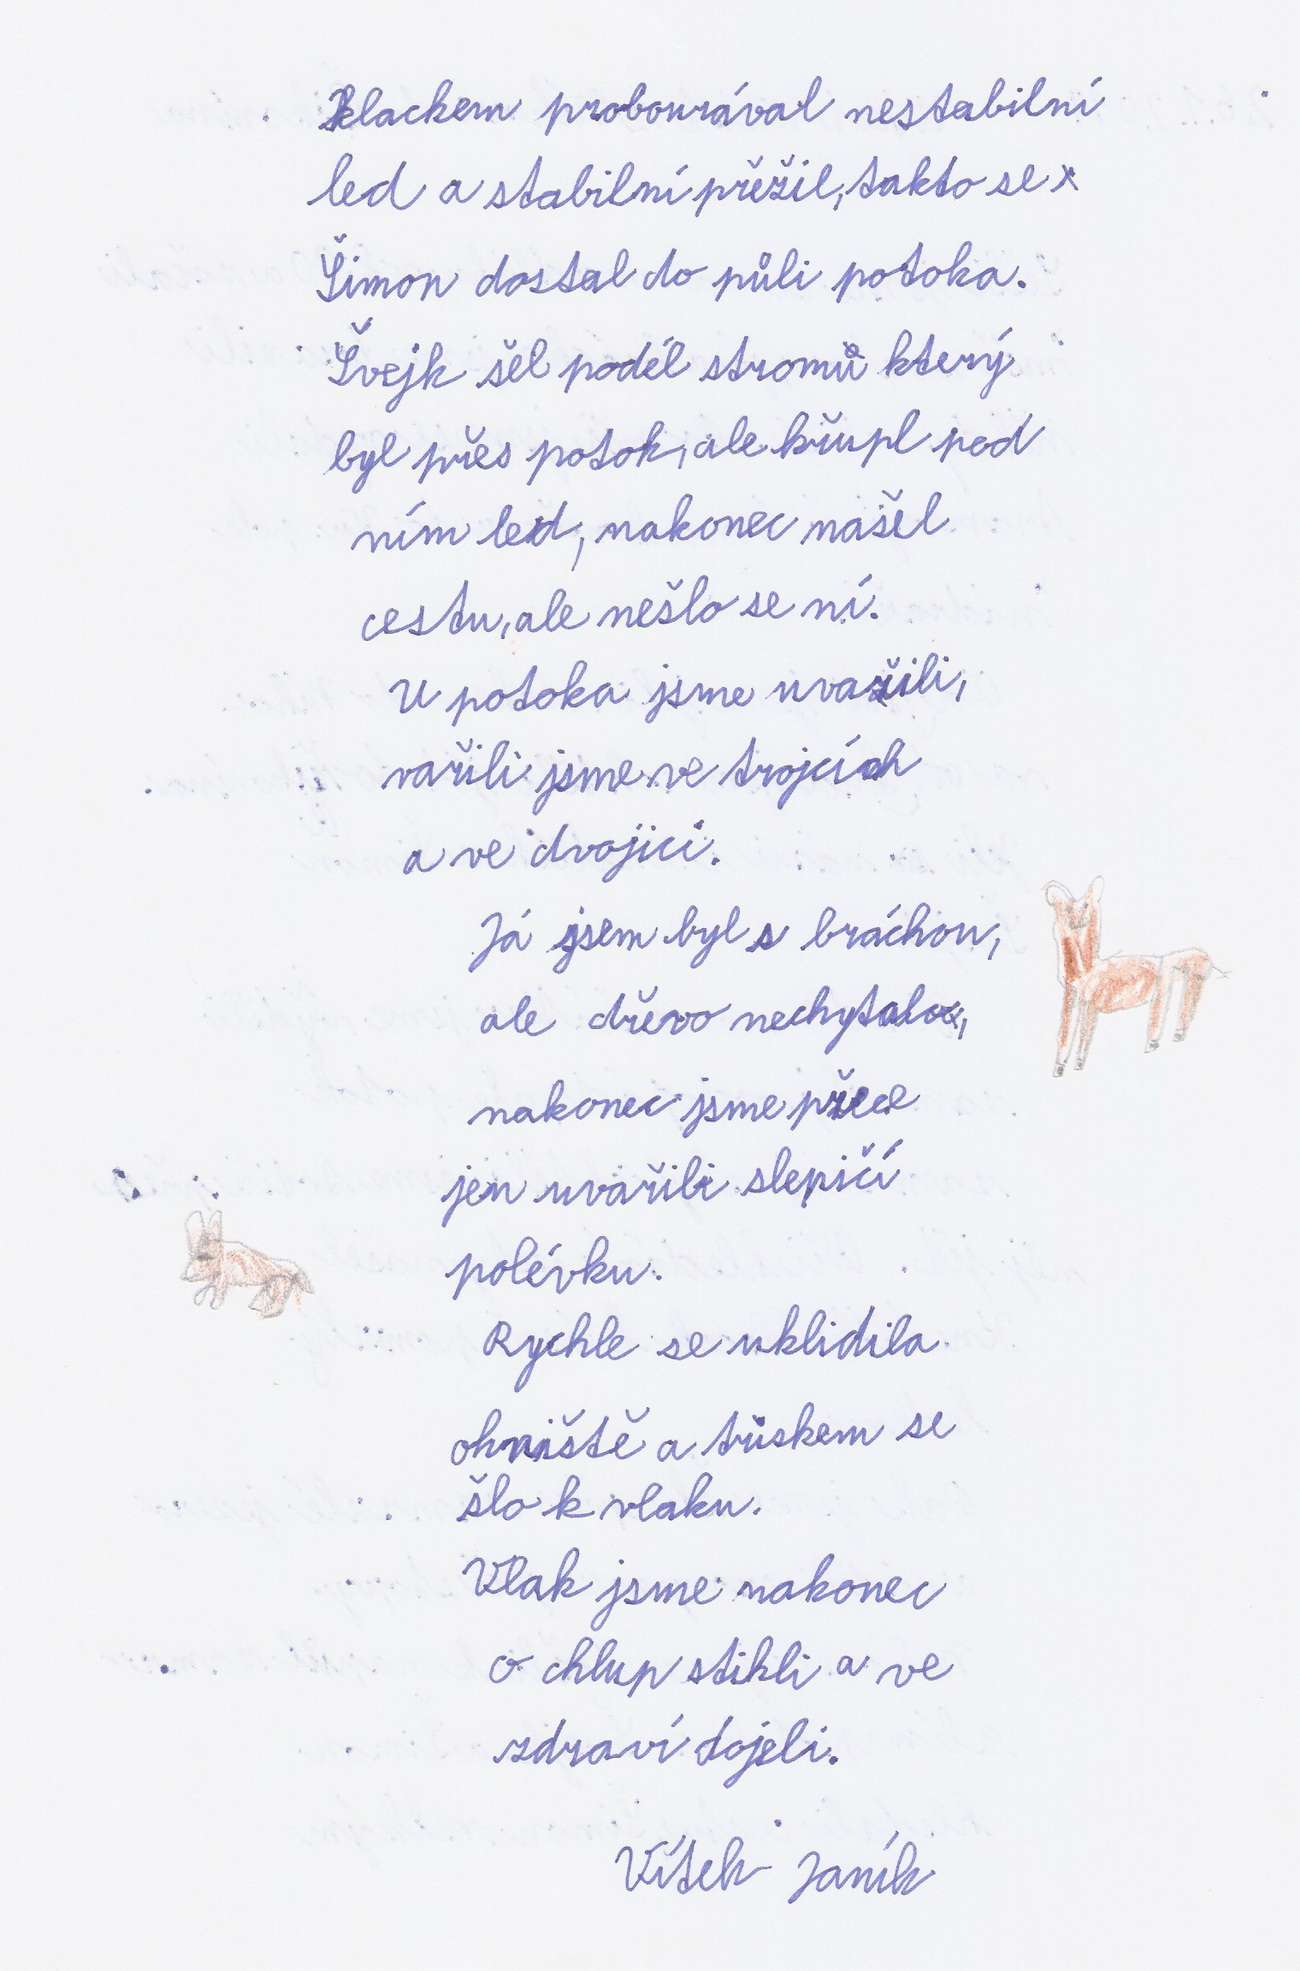 klackem probourával nestabilní
led a stabilní přěžil, takto se
Šimon dostal do půli potoka.
Švejk šel poděl stromů který
byl přes potok, ale křupl pod
ním led, nakonec našel
cestu, ale nešlo se ní.
U potoka jsme uvařili,
vařili jsme ve trojcích
a ve dvojici.
Já jsem byl s bráchou,
ale dřevo nechytalo,
nakonec jsme přece
jen uvařili slepičí
polévku.
Rychle se uklidila
ohniště a tůskem se
šlo k vlaku.
Vlak jsme nakonec
o chlup stihli a ve
zdraví dojeli.
Vítek Janík